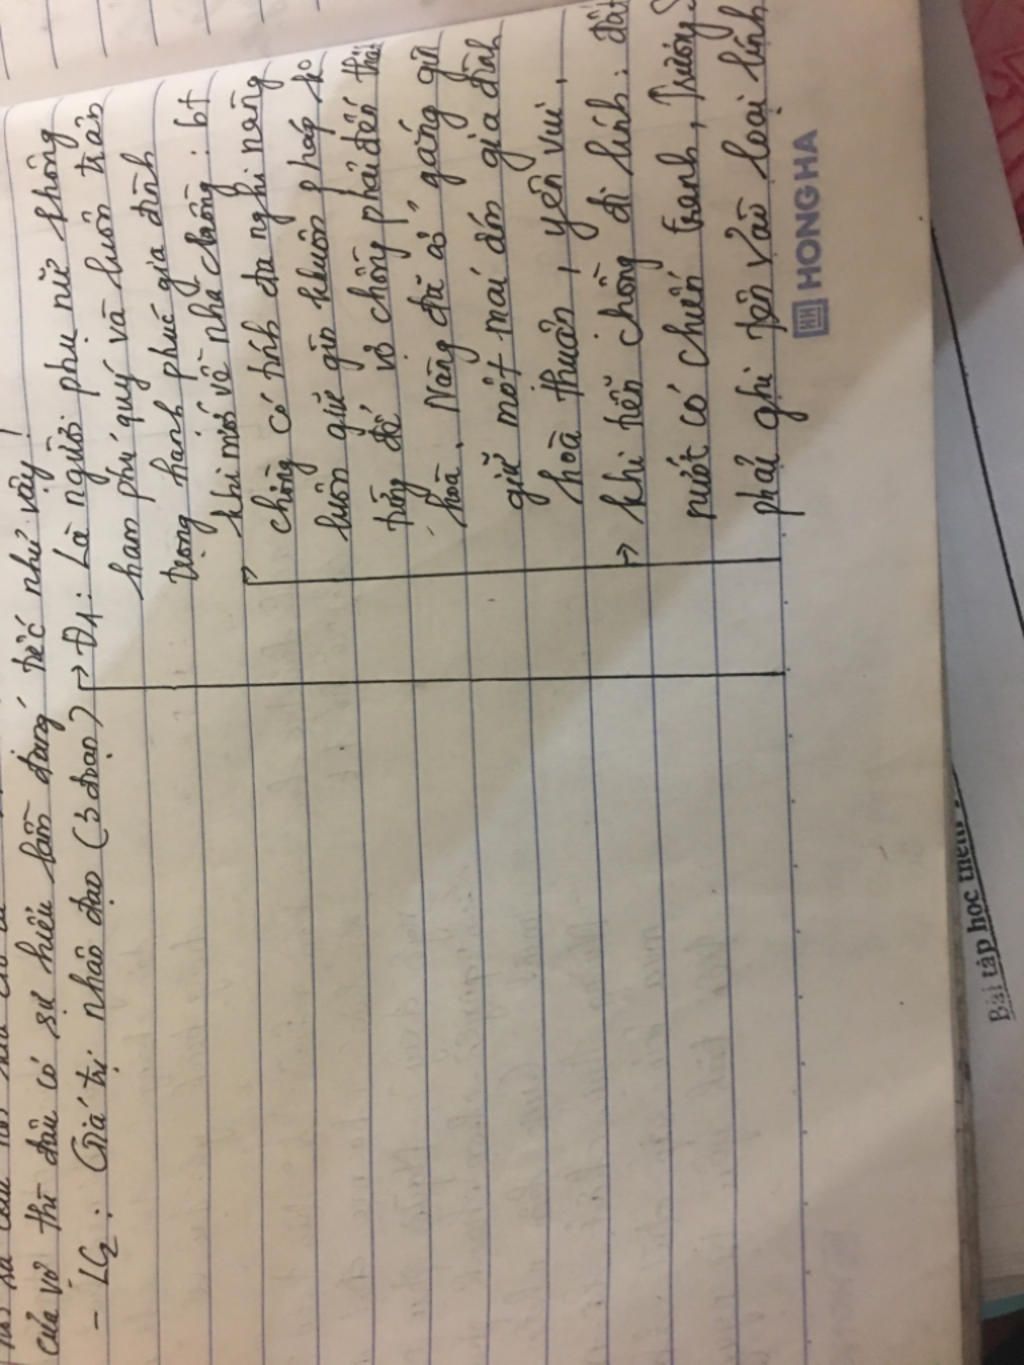 của vợ thì đâu có sự hiểu lầm đáng tiếc như vậy!
- LC2: Giá trị nhân đạo (3 đoạn) → Đ1: Là người phụ nữ không
ham phú quý và luôn trân
trọng hạnh phúc gia đình
→ khi mới về nhà chồng: bt
chồng có tính đa nghi nàng
luôn giữ gìn khuôn phép ko
từng để vợ chồng phải đến thất
hoà. Nàng đã cố gắng gìn
giữ một mái ấm gia đình
hoà thuận, yên vui.
→ khi tiễn chồng đi lính: đất
nước có chiến tranh, Trương S
phải ghi tên vào loại lính
HH HONG HA
Bài tập học thêm